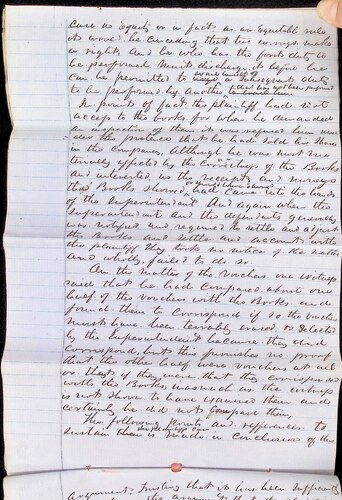 case in Equity or in facts as an Equitable rule
itsword, be conceding that two wrongs make
a right. And he who has the first duty to
be performed must discharge it before he
can be permitted to avail himself of a subsequent duty
to be performed by another
In point of fact the plaintiff had not
access to the books for when he demanded
an inspection of them it was refused him
the pretence that he had sold his share
in the company. Although he was most
effected by the of the Books
and interested in the receipts and moneys
the Books showed had came into the hands
of the Superintendent And again when the
Superintendent and the defendants generally
was notified and required to settle and adjust
the Books and settle and account with
the plaintiff they took no notice of the matter
and wholly failed to do so
On the matter of the Vouchers one witness
said that he had compared about one
half of the vouchers with the Books and
found them to correspond if so the vouchers
must have been terribly erased or selected
by the Superintendent because they did
correspond, but this furnishes no proof
that the other half were vouchers at all
or that if they were that they corresponded
with the Books inasmuch as the witness
is not shown to have examined them and
certainly he did not compare them,
The following points and references to
sustain them is made in conclusion of this
argument. Trusting that it has been sufficiently